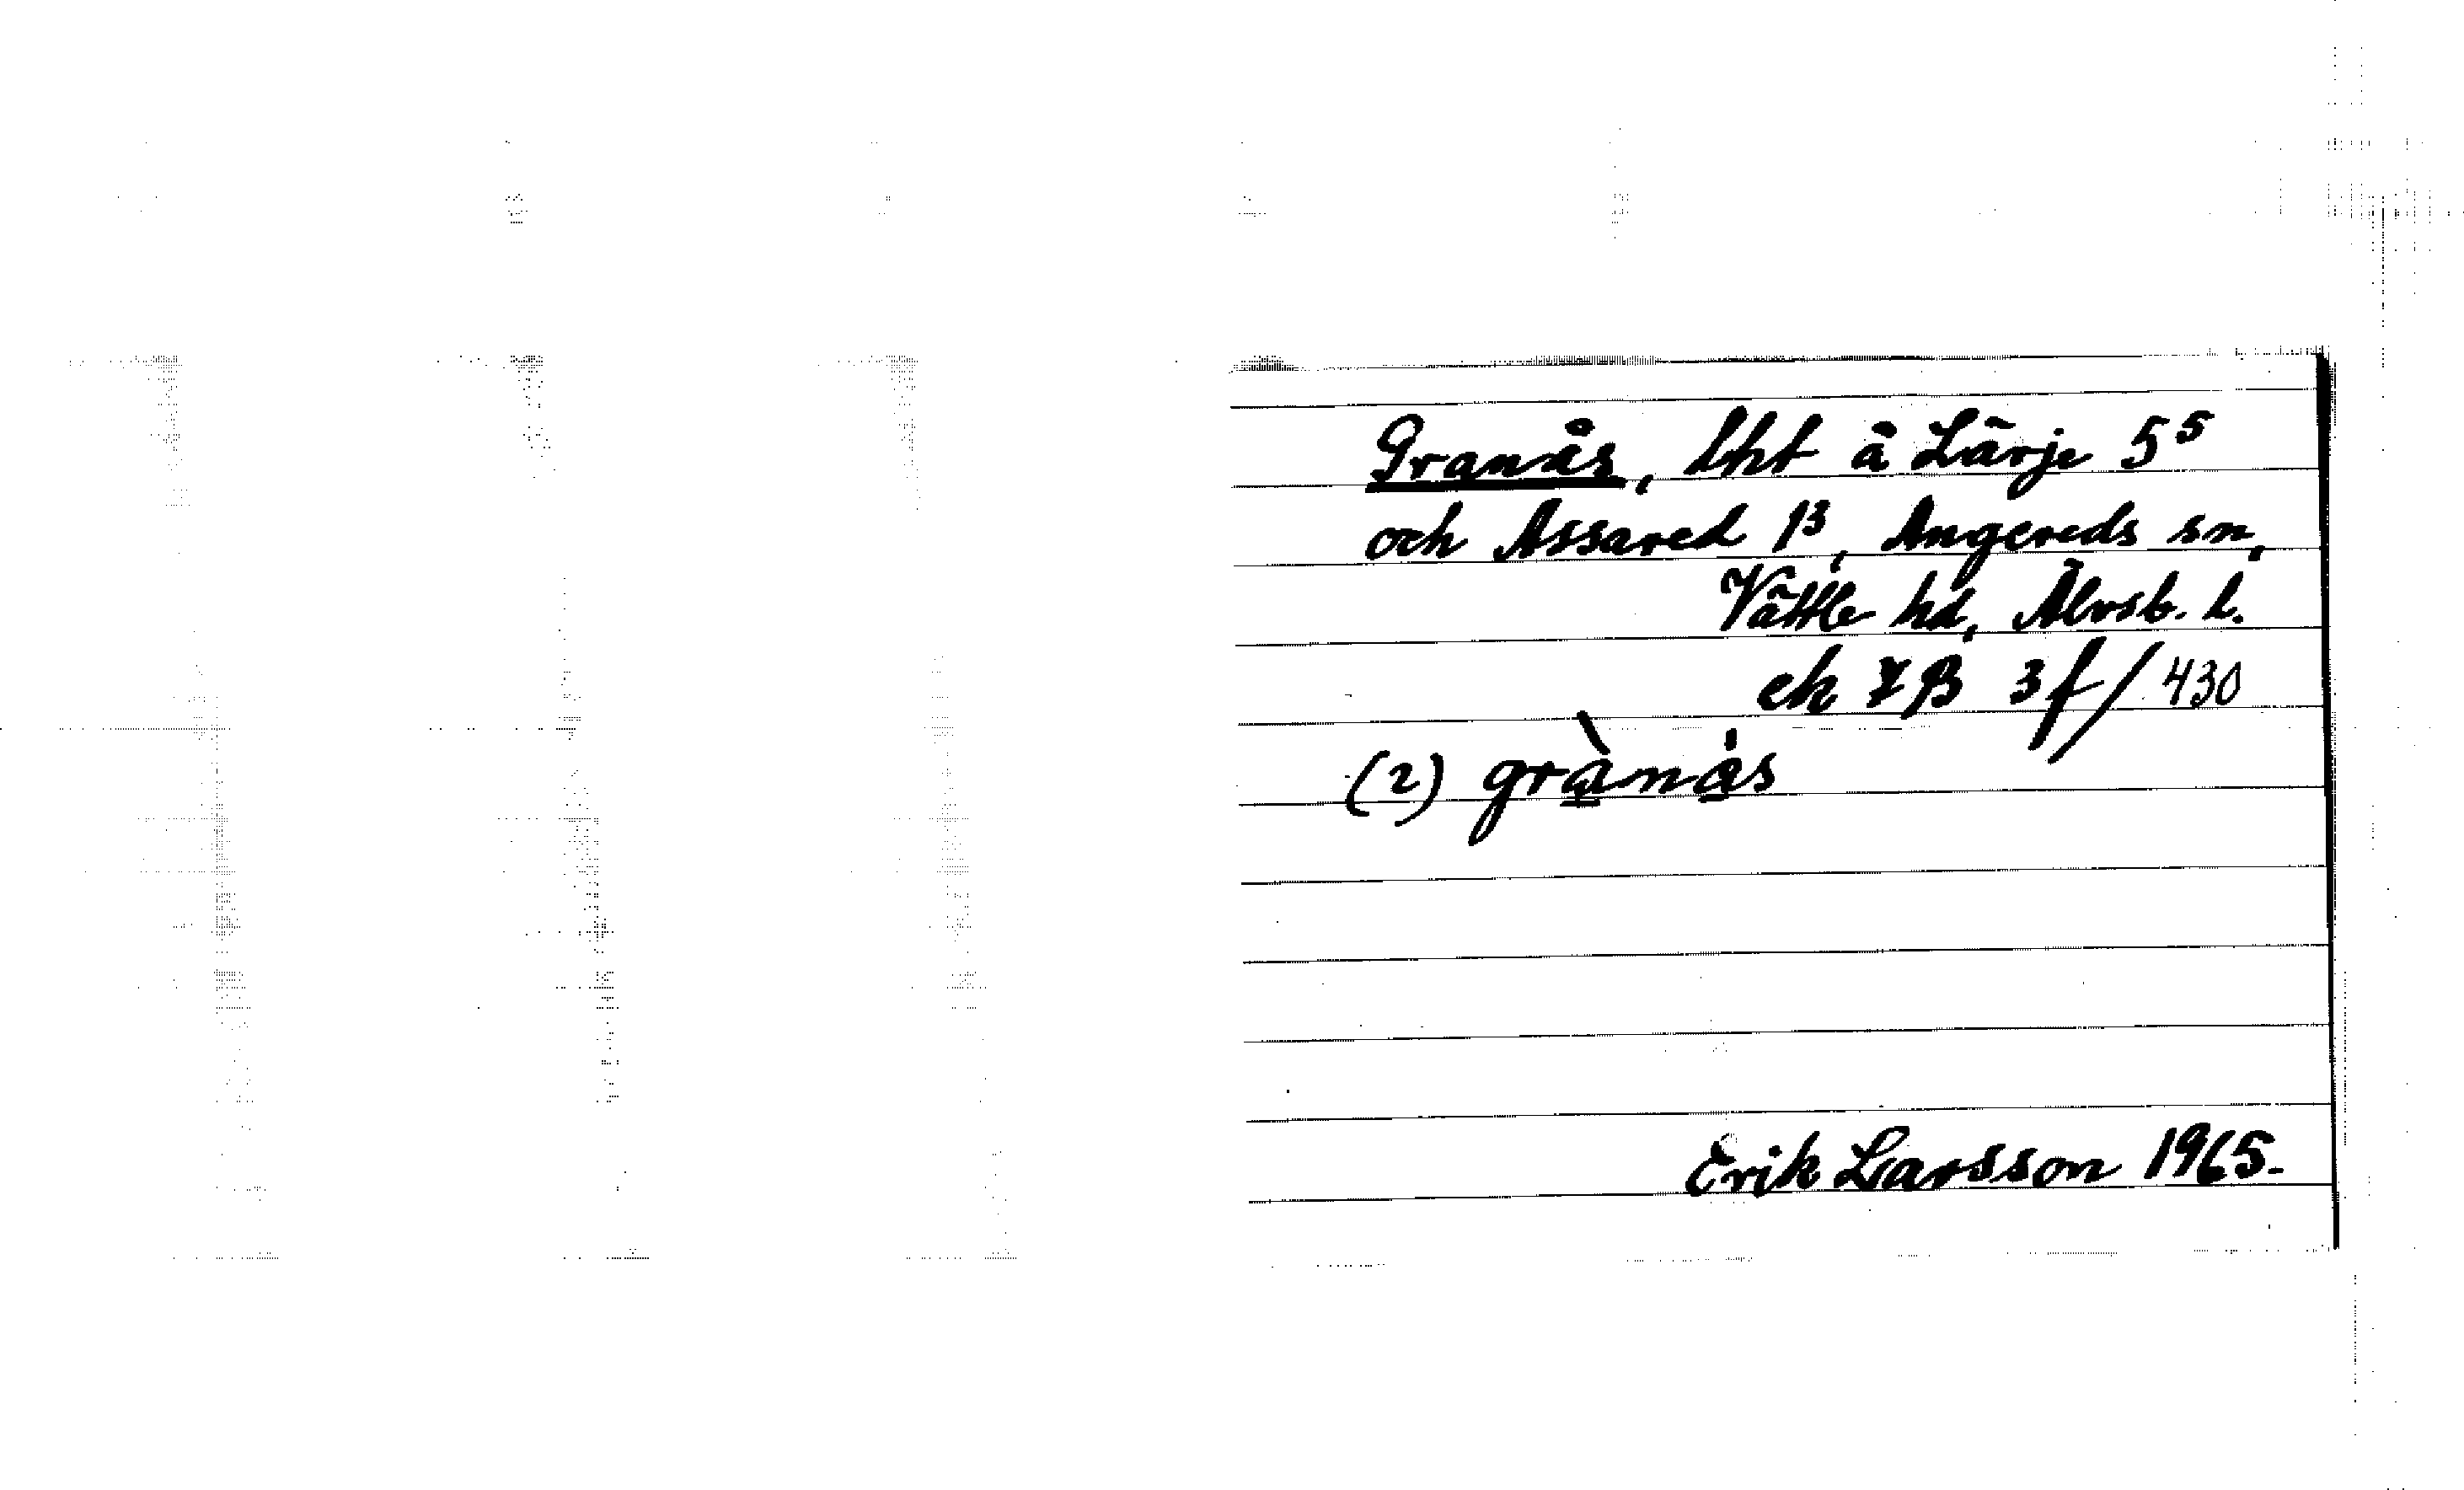 Granås, lht å Lärje 5⁵
och Assared 1³, Angereds sn,
Vättle hd, Älvsb. l.
ek 7B 3f/430
(2) grànås
Erik Larsson 1965.